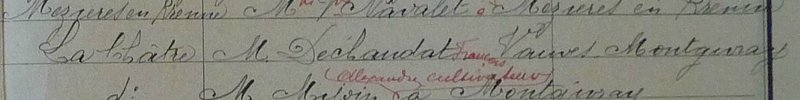 Mezières en Brenne M Navalet à Mezières en Brenne
La Châtre M. Dechaudat François Vauves Montgivray
Alexandre cultivateur
d: M à Montgivray